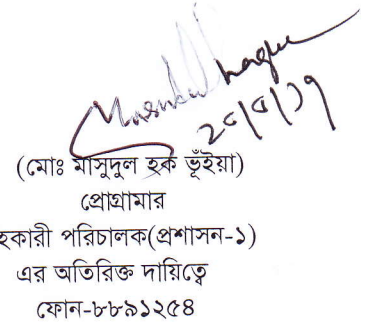 (মোঃ মাসুদুল হক ভূঁইয়া)
প্রোগ্রামার
হকারী পরিচালক(প্রশাসন-১)
এর অতিরিক্ত দায়িত্বে
ফোন-৮৮৯১২৫৪